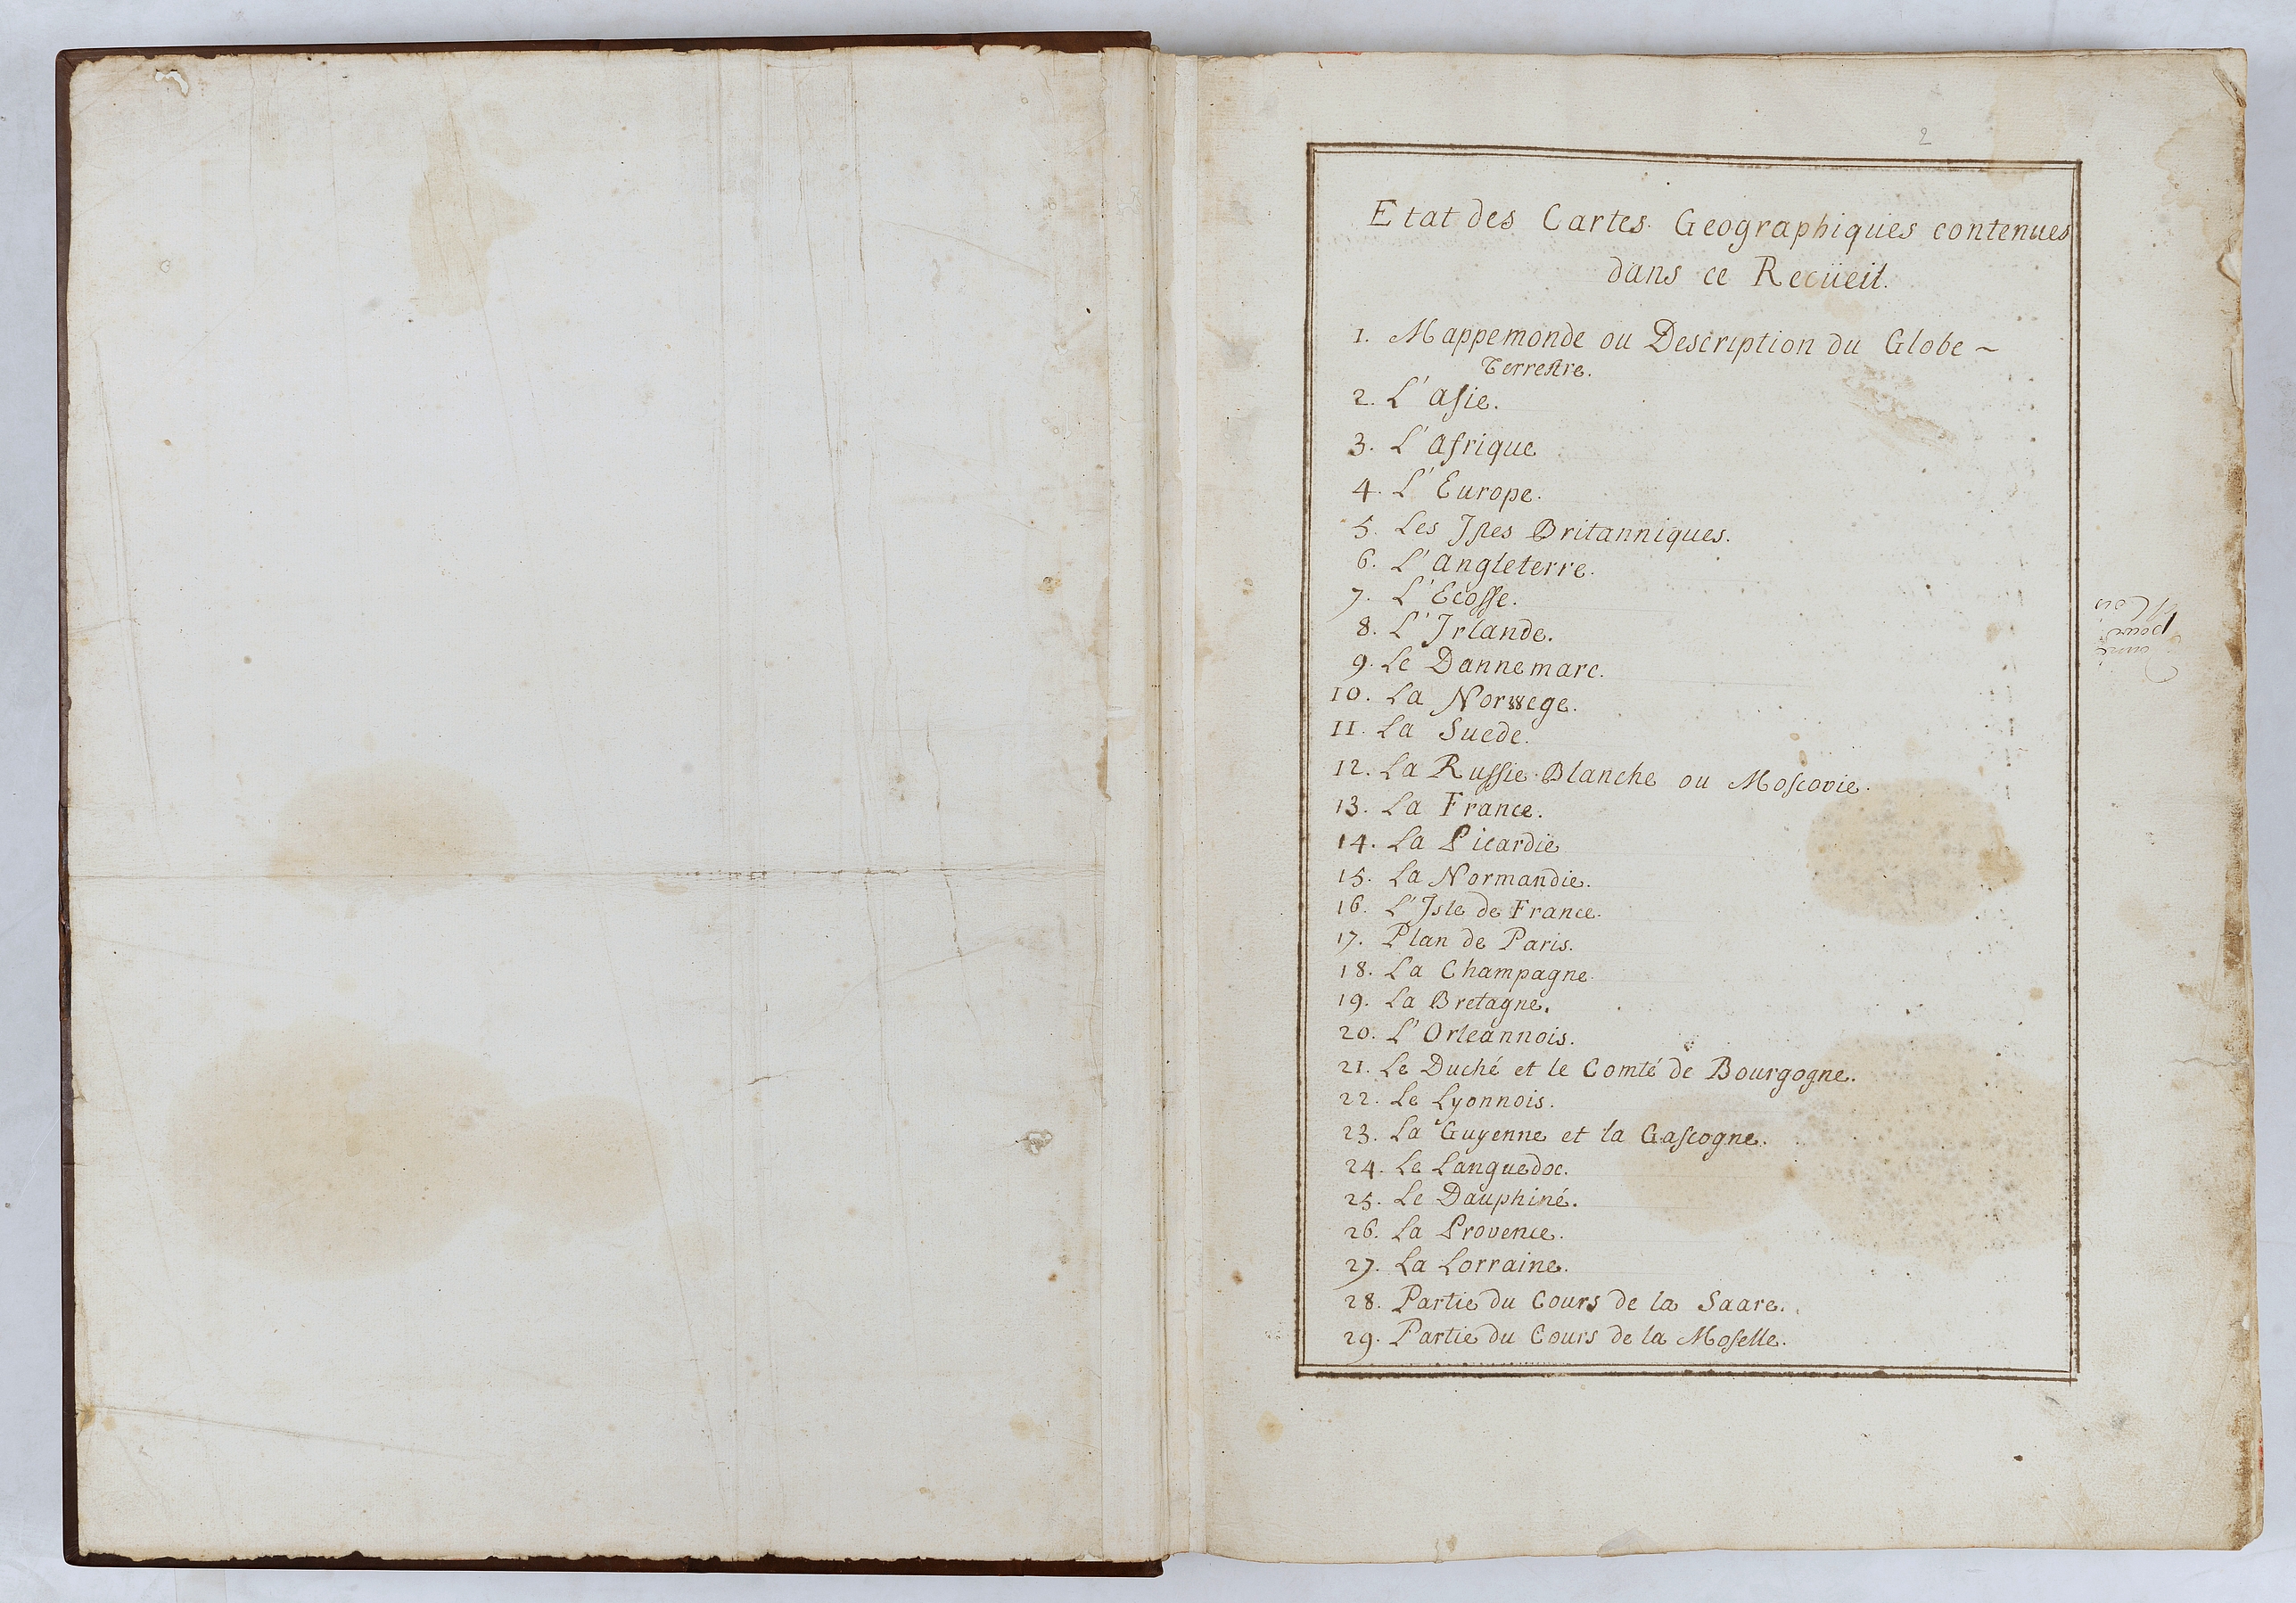 2
Etat des Cartes Geographiques contenues
dans ce Recüeil.
1. Mappemonde ou Description du Globe ~
Terrestre.
2. L'Asie.
3. L'Afrique
4. L'Europe.
5. Les Isles Britanniques.
6. L'Angleterre.
7. L'Ecosse.
8. L'Irlande.
9. Le Dannemarc.
10. La Norwege.
11. La Suede.
12. La Russie Blanche ou Moscovie.
13. La France.
14. La Picardie
15. La Normandie.
16. L'Isle de France.
17. Plan de Paris.
18. La Champagne.
19. La Bretagne.
20. L'Orleannois.
21. Le Duché et le Comté de Bourgogne.
22. Le Lyonnois.
23. La Guyenne et la Gascogne.
24. Le Languedoc.
25. Le Dauphiné.
26. La Provence.
27. La Lorraine.
28. Partie du Cours de la Saare.
29. Partie du Cours de la Moselle.
pour